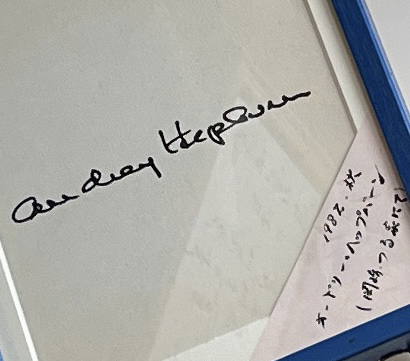 Audrey Hepburn
1982.秋
オードリー・ヘップバーン
(関 つる家にて)